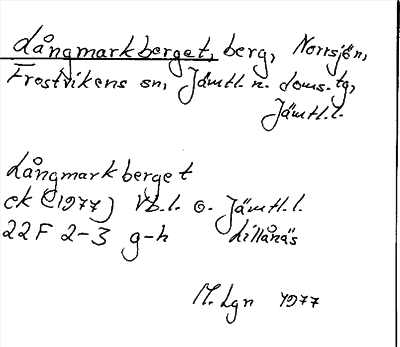 Långmarkberget, berg, Norrsjön,
Frostvikens sn, Jämtl. n. doms.tg,
Jämtl.l.
Långmarkberget
ek (1977) Vb.l. o. Jämtl.l.
22F 2-3 g-h Lillånäs
M. Lgn 1977